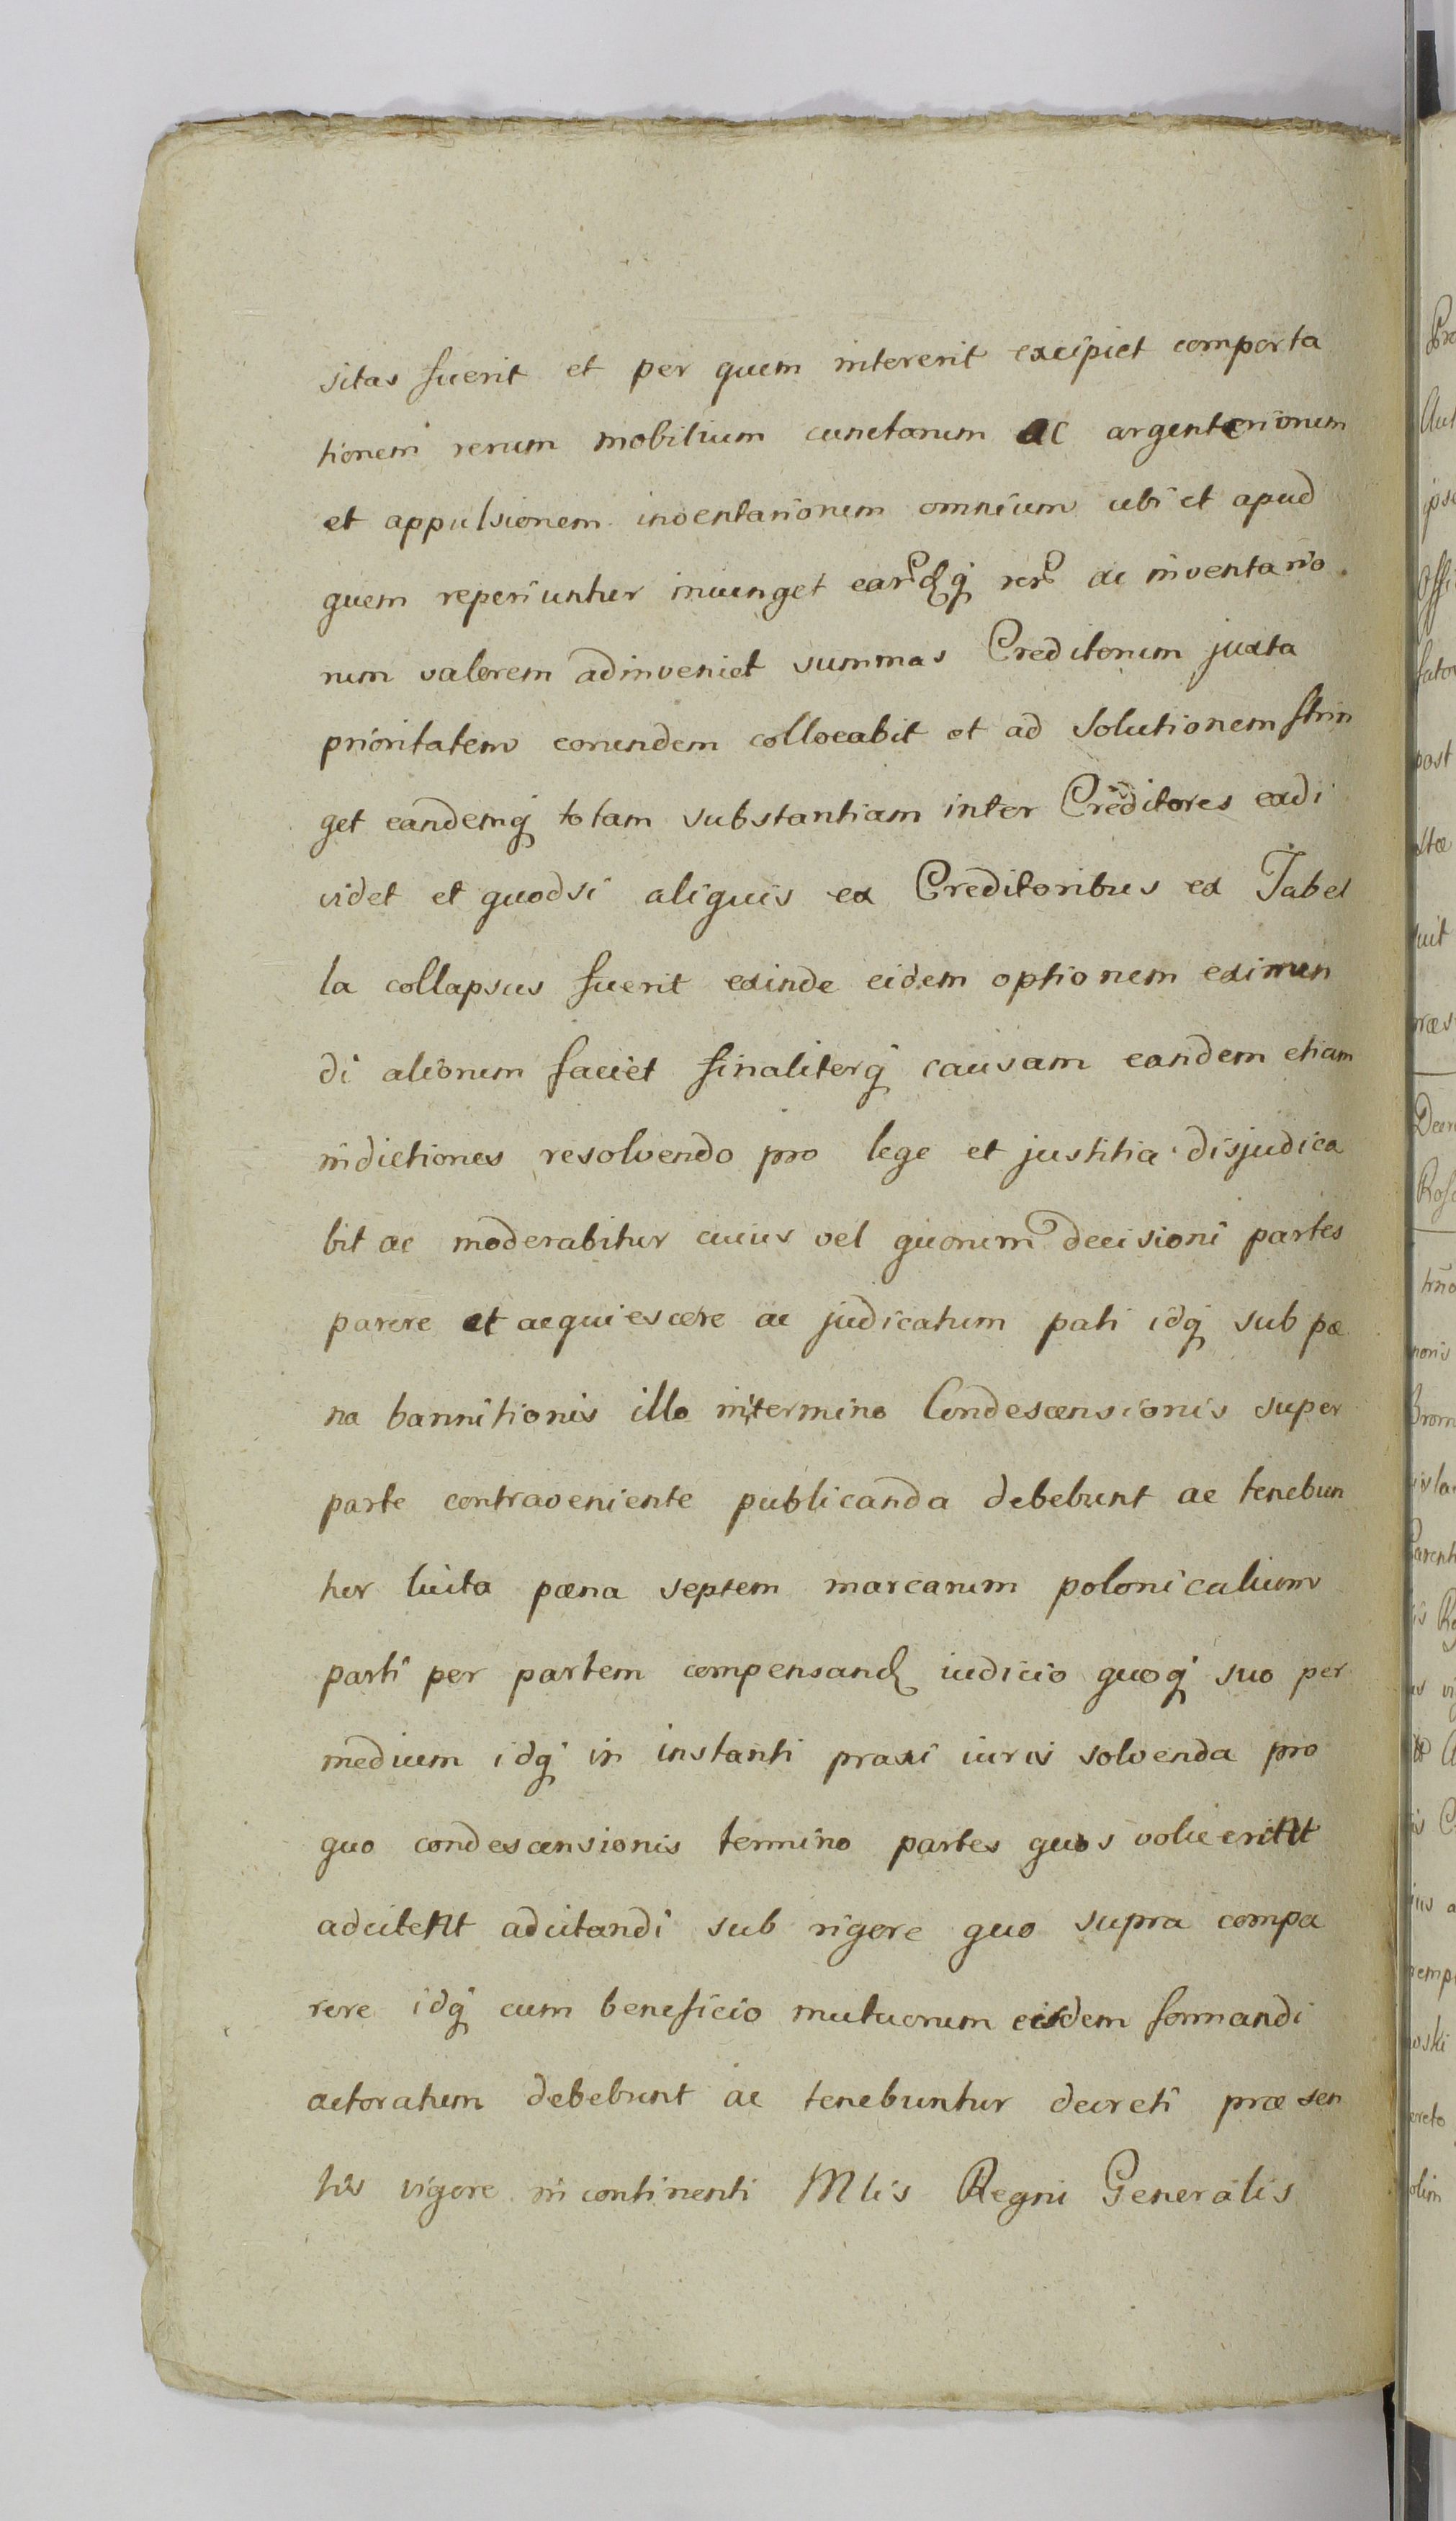 sitas fuerit et per quem intererit excipiet comporta
tionem rerum mobilium cunctarum ac argenteriorum
et appulsionem inventariorum omnium ubi et apud
quem reperiuntur iniunget ac inventario
rum valorem adinveniet summas Creditorum juxta
prioritatem eorundem collocabit et ad solutionem strin
get eandemq totam substantiam inter Creditores exdi
videt et quodsi aliquis ex Creditoribus ex Tabel
la collapsus fuerit exinde eidem optionem eximen
di aliorum faciet finaliterq causam eandem etiam
indictiones resolvendo pro lege et justitia disjudica
bit ac moderabitur cuius vel quorum decisioni partes
parere et acquiescere ac judicatum pati idq sub pæ
na bannitionis illo in termino Condescensionis super
parte contraveniente publicanda debebunt ac tenebun
tur luita pæna septem marcarum polonicalium
parti per partem compensand iudicio quoq suo per
medium idq in instanti praxi iuris solvenda pro
quo condescensionis termino partes quos voluerint
adcitent adcitandi sub rigore quo supra compa
rere idq cum beneficio mutuorum eisdem formandi
actoratum debebunt ac tenebuntur decreti præsen
tis vigore in continenti Mlis Regni Generalis